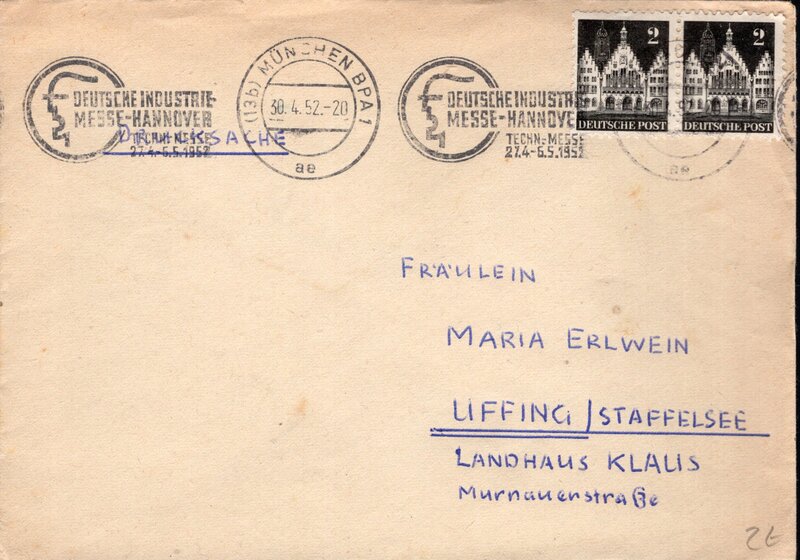 DEUTSCHE INDUSTRIE-
MESSE-HANNOVER
TECHN.-MESSE
27.4.-6.5.1952
DRUCKSACHE
(13b) MÜNCHEN BPA 1
30.4.52.-20
ae
DEUTSCHE INDUSTRIE-
MESSE-HANNOVER
TECHN.-MESSE
27.4.-6.5.1952
2
DEUTSCHE POST
2
DEUTSCHE POST
ae
FRÄULEIN
MARIA ERLWEIN
UFFING / STAFFELSEE
LANDHAUS KLAUS
Murnauerstraße